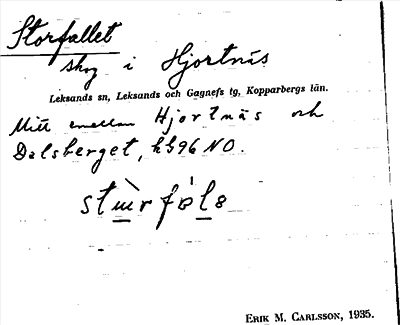 Storfallet
skog i Hjortnäs
Leksands sn, Leksands och Gagnefs tg, Kopparbergs län.
Mitt emellan Hjortnäs och
Dalsberget, k G96 NO.
ERIK M. CARLSSON, 1935.